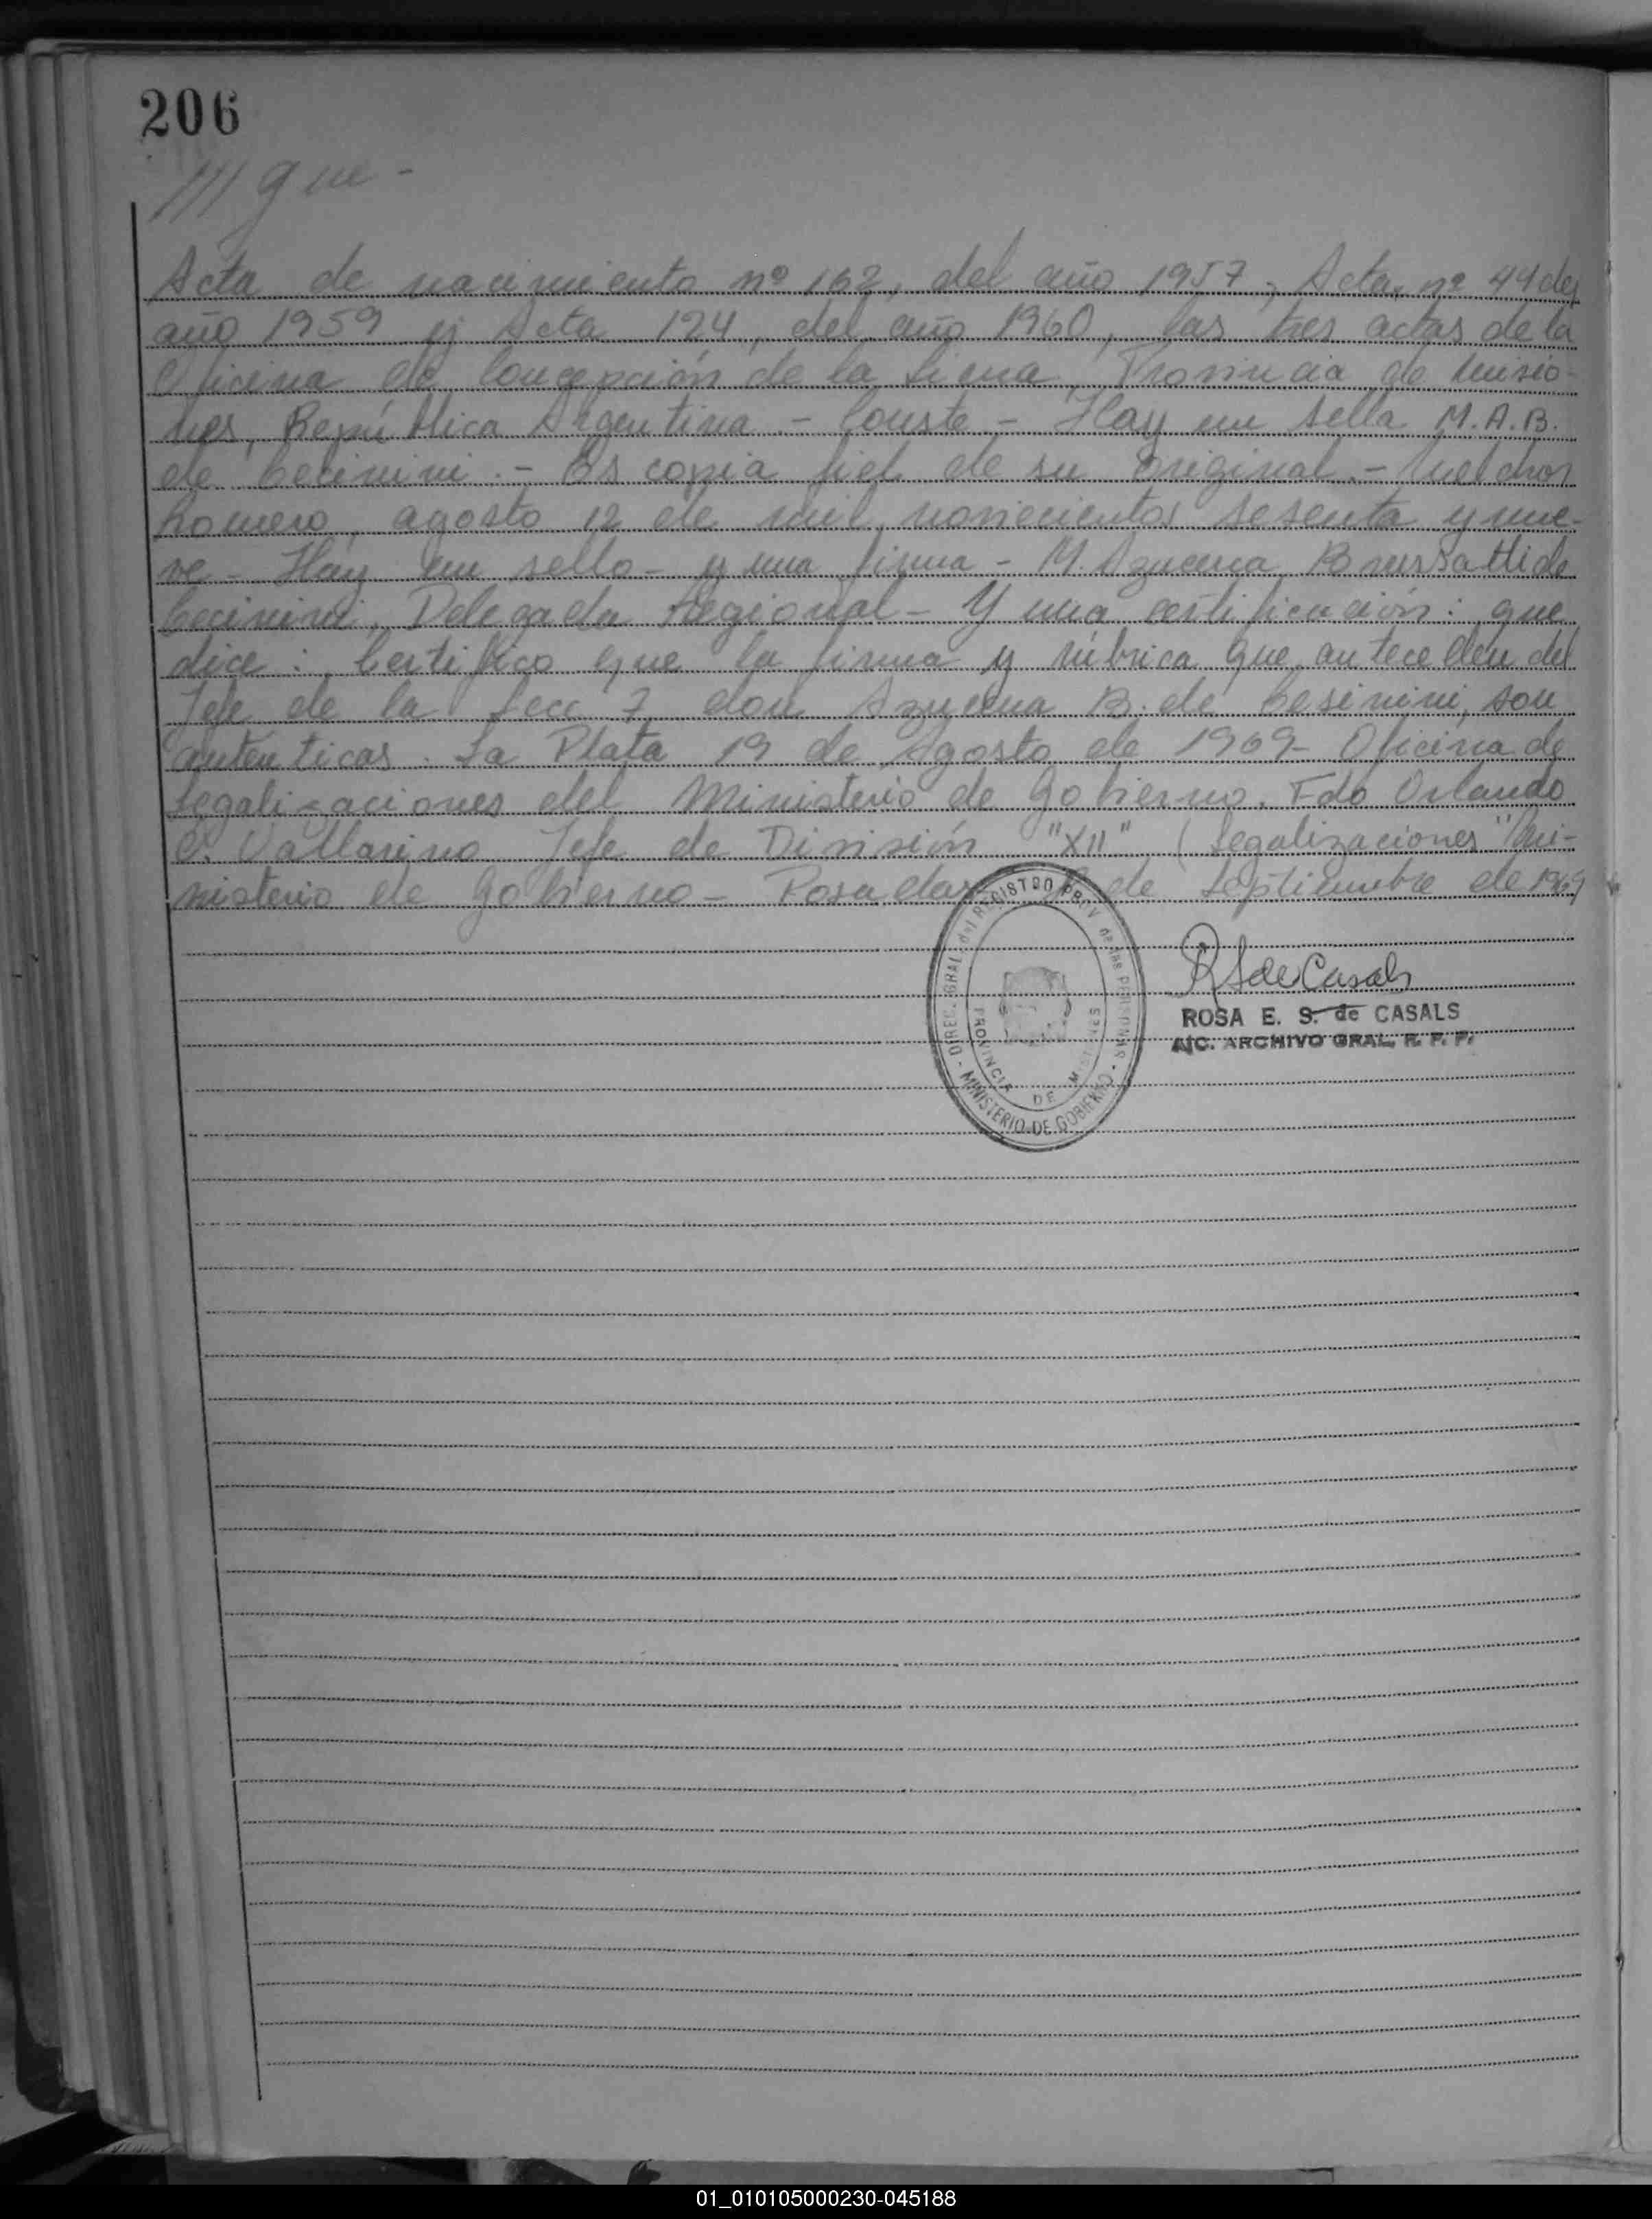 206
/// que -
Acta de nacimiento nº 162, del año 1957, Acta, nº 44 del
año 1959 y Acta 124, del año 1960, las tres actas de la
Oficina de Concepción de la Sierra, Provincia de Misio-
nes, República Argentina. - Conste - Hay un sello M.A.B.
de Cecinini. - Es copia fiel de su original. - Melchor
Romero, agosto 12 de mil novecientos sesenta y nue-
ve - Hay un sello - y una firma - M. Azucena de
Cecinini, Delegada Regional - Y una certificación: que
dice: Certifico que la firma y rúbrica que anteceden del
Jefe de la Secc 7 don Azucena B. de Cesinini, son
autenticas. La Plata 19 de Agosto de 1969 - Oficina de
Legalizaciones del Ministerio de Gobierno. Fdo Orlando
C. Vallarino Jefe de División "XII" (Legalizaciones" Mi-
nisterio de Gobierno - Posadas de Septiembre de 1969
DIREC. GRAL. del REGISTRO PROV. de las PERSONAS - MINISTERIO DE GOBIERNO -
PROVINCIA DE MISIONES
R S de Casals
ROSA E. S. de CASALS
A/C. ARCHIVO GRAL. R. P. P.
01_010105000230-045188